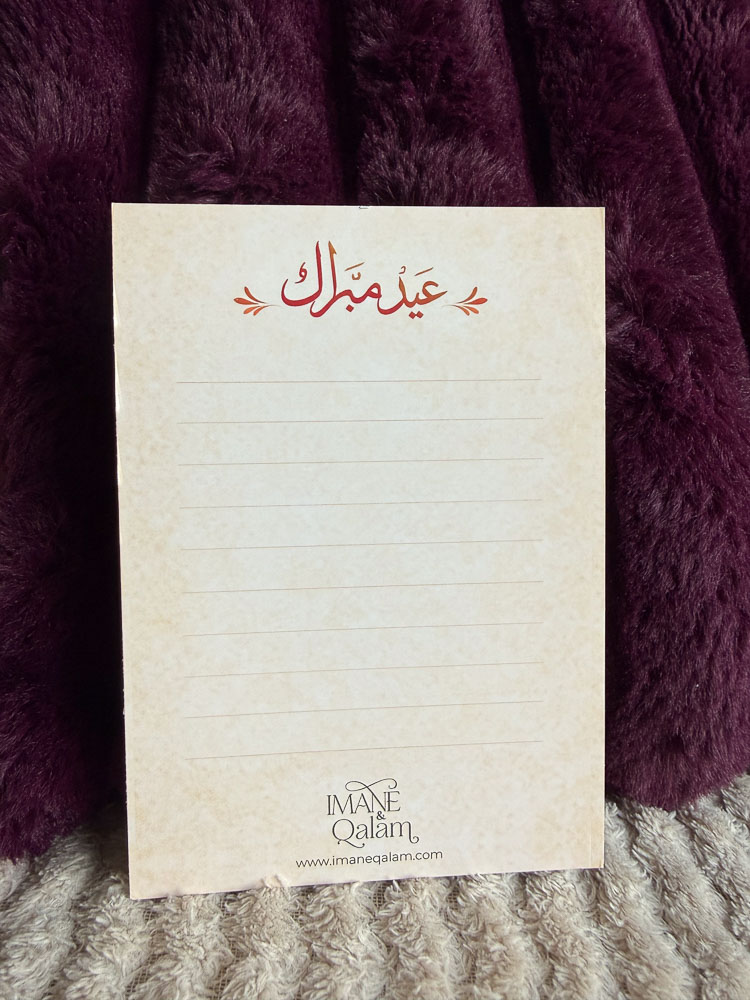 عَيْدْ مبَّرَاك
IMANE
&
Qalam
www.imaneqalam.com